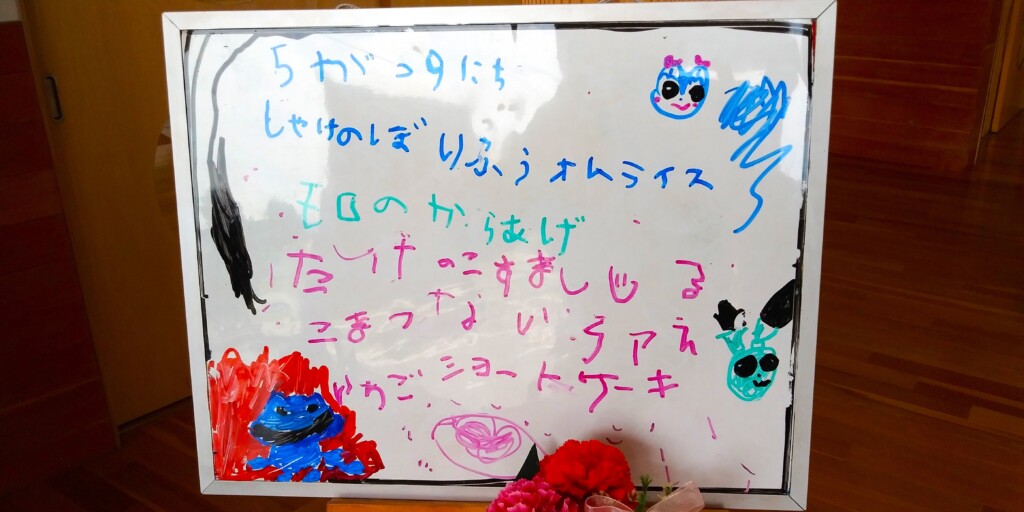 5がつ9にち
しゃけのしぼりふうオムライス
モロのからあげ
たけのこすましじる
こまつな
いちごショートケーキ